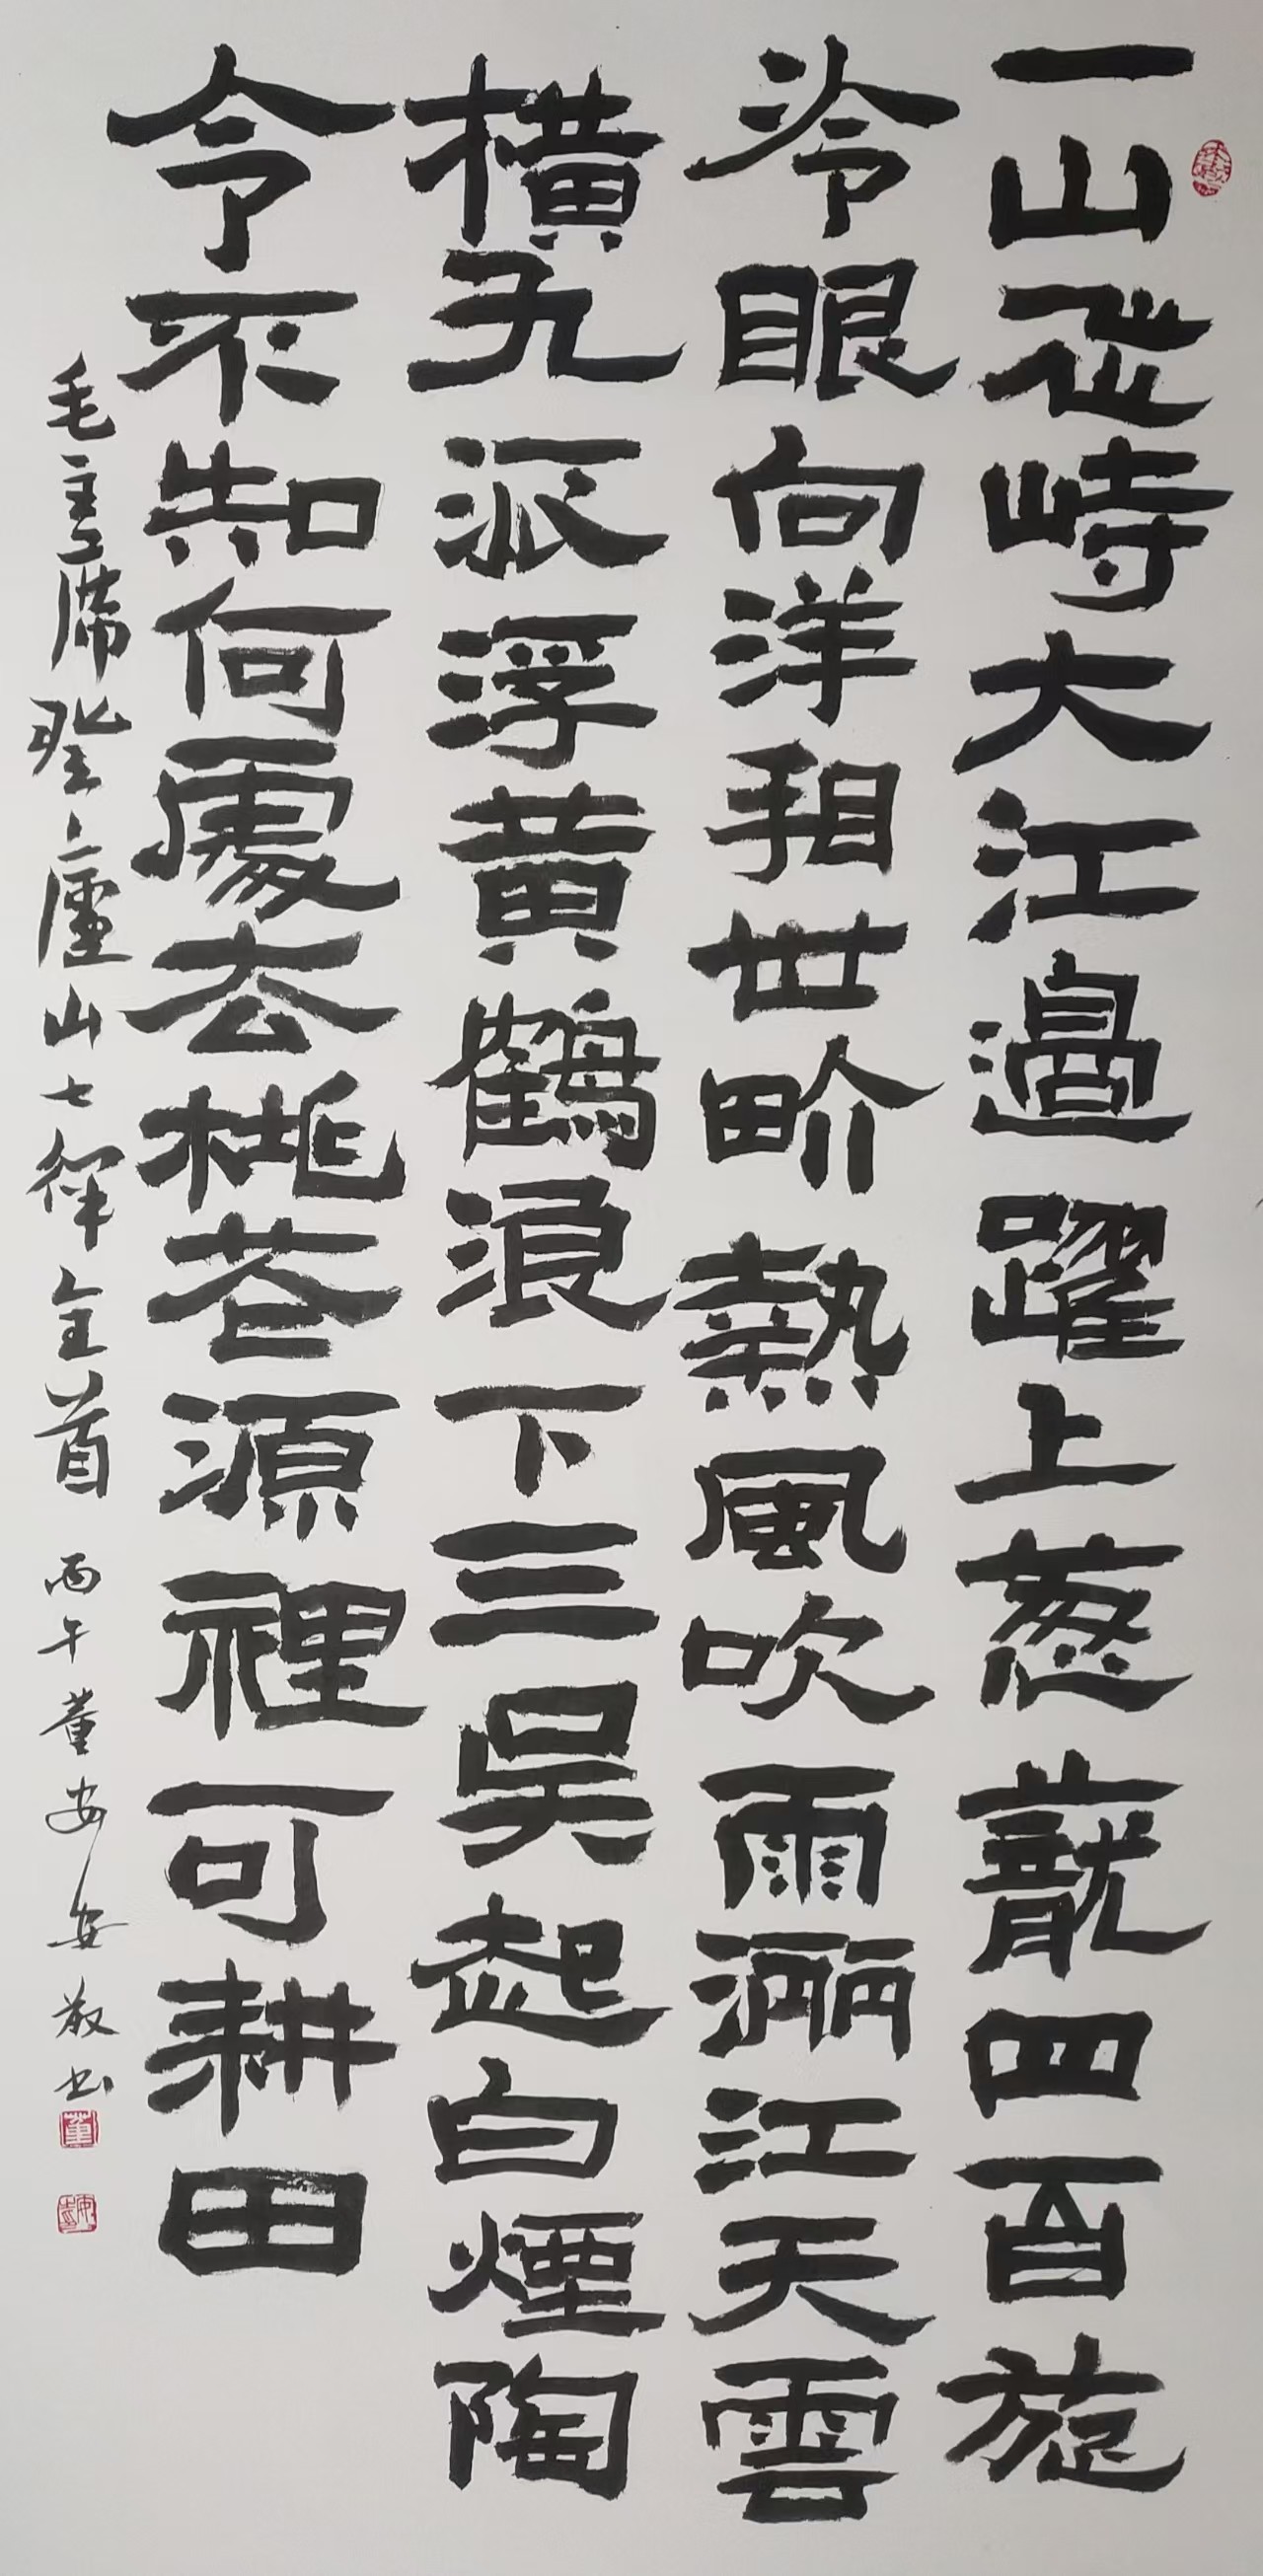 一山飛峙大江邊躍上葱蘢四百旋
冷眼向洋看世界熱風吹雨灑江天雲
橫九派浮黃鶴浪下三吳起白煙陶
令不知何處去桃花源裡可耕田
毛主席登廬山七律全首 丙午 董安安敬书
董